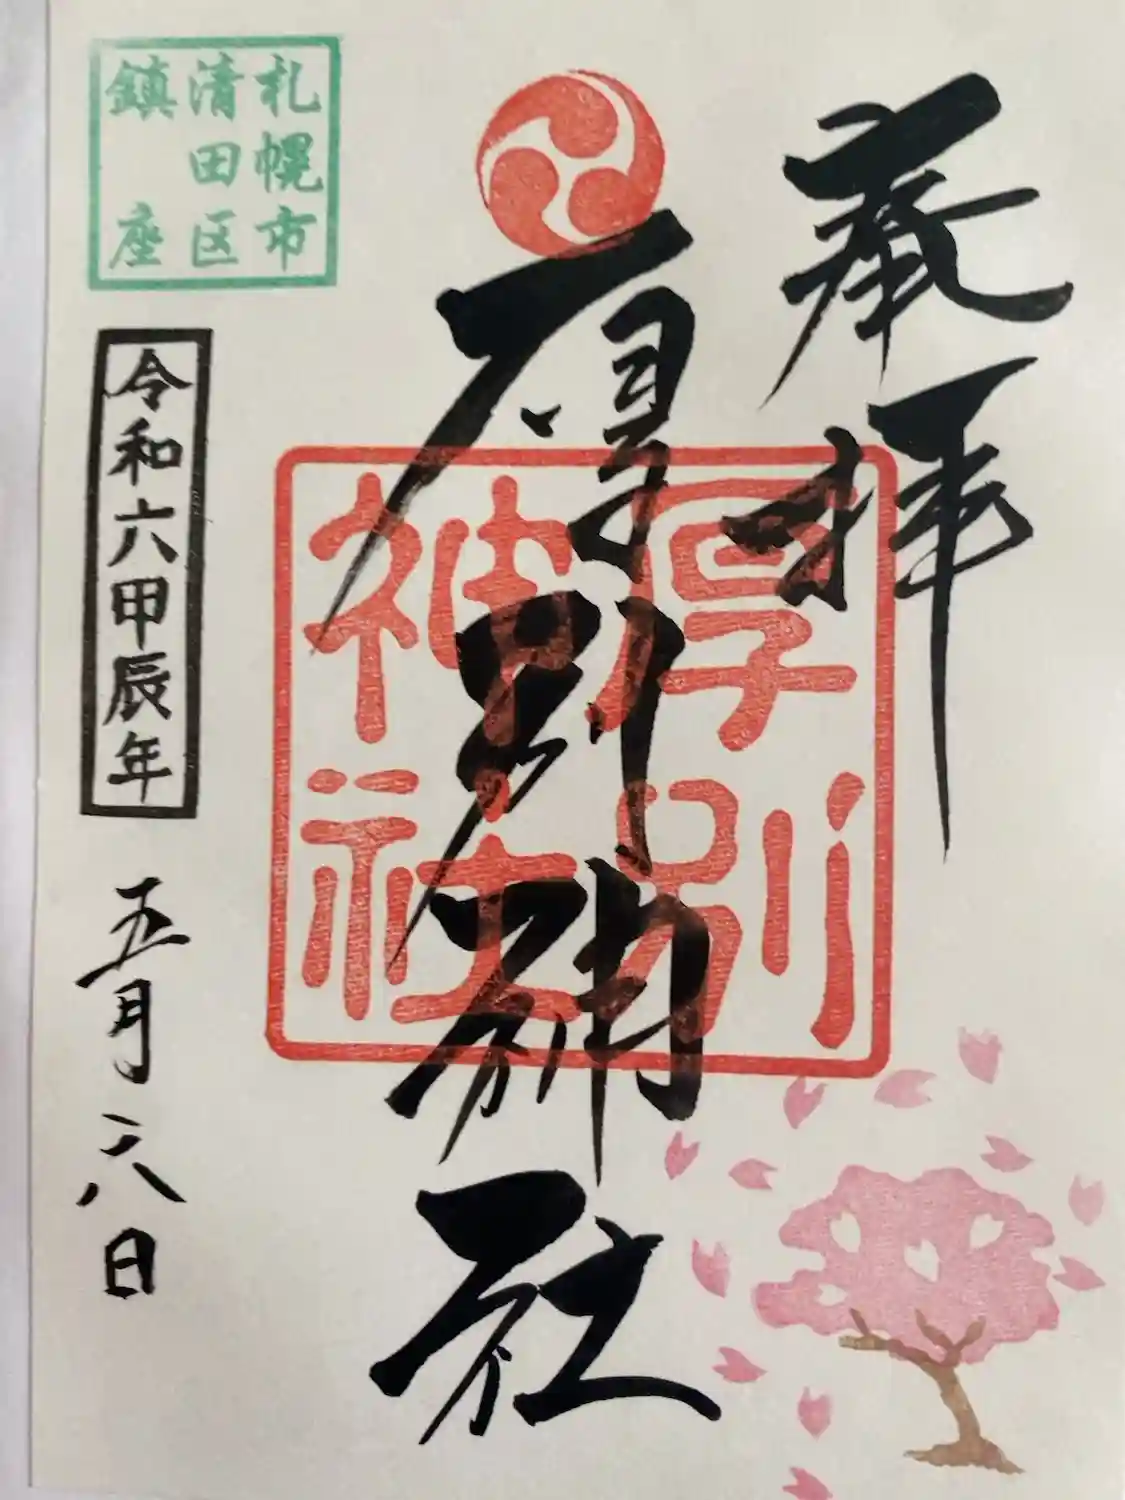 奉拝
厚別神社
厚別
神社
札幌市
清田区
鎮座
令和六甲辰年
五月六日